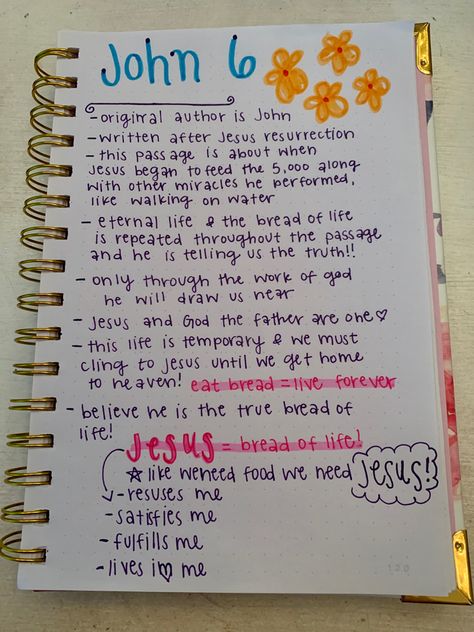 John 6
- original author is John
- written after Jesus resurrection
- this passage is about when
Jesus began to feed the 5,000 along
with other miracles he performed,
like walking on water
- eternal life & the bread of life
is repeated throughout the passage
and he is telling us the truth!!
- only through the work of god
he will draw us near
- Jesus and God the father are one♡
- this life is temporary & we must
cling to Jesus until we get home
to heaven! eat bread = live forever
- believe he is the true bread of
life!
Jesus = bread of life!
☆ like we need food we need Jesus!
- resuses me
- satisfies me
- fulfills me
- lives in me
120